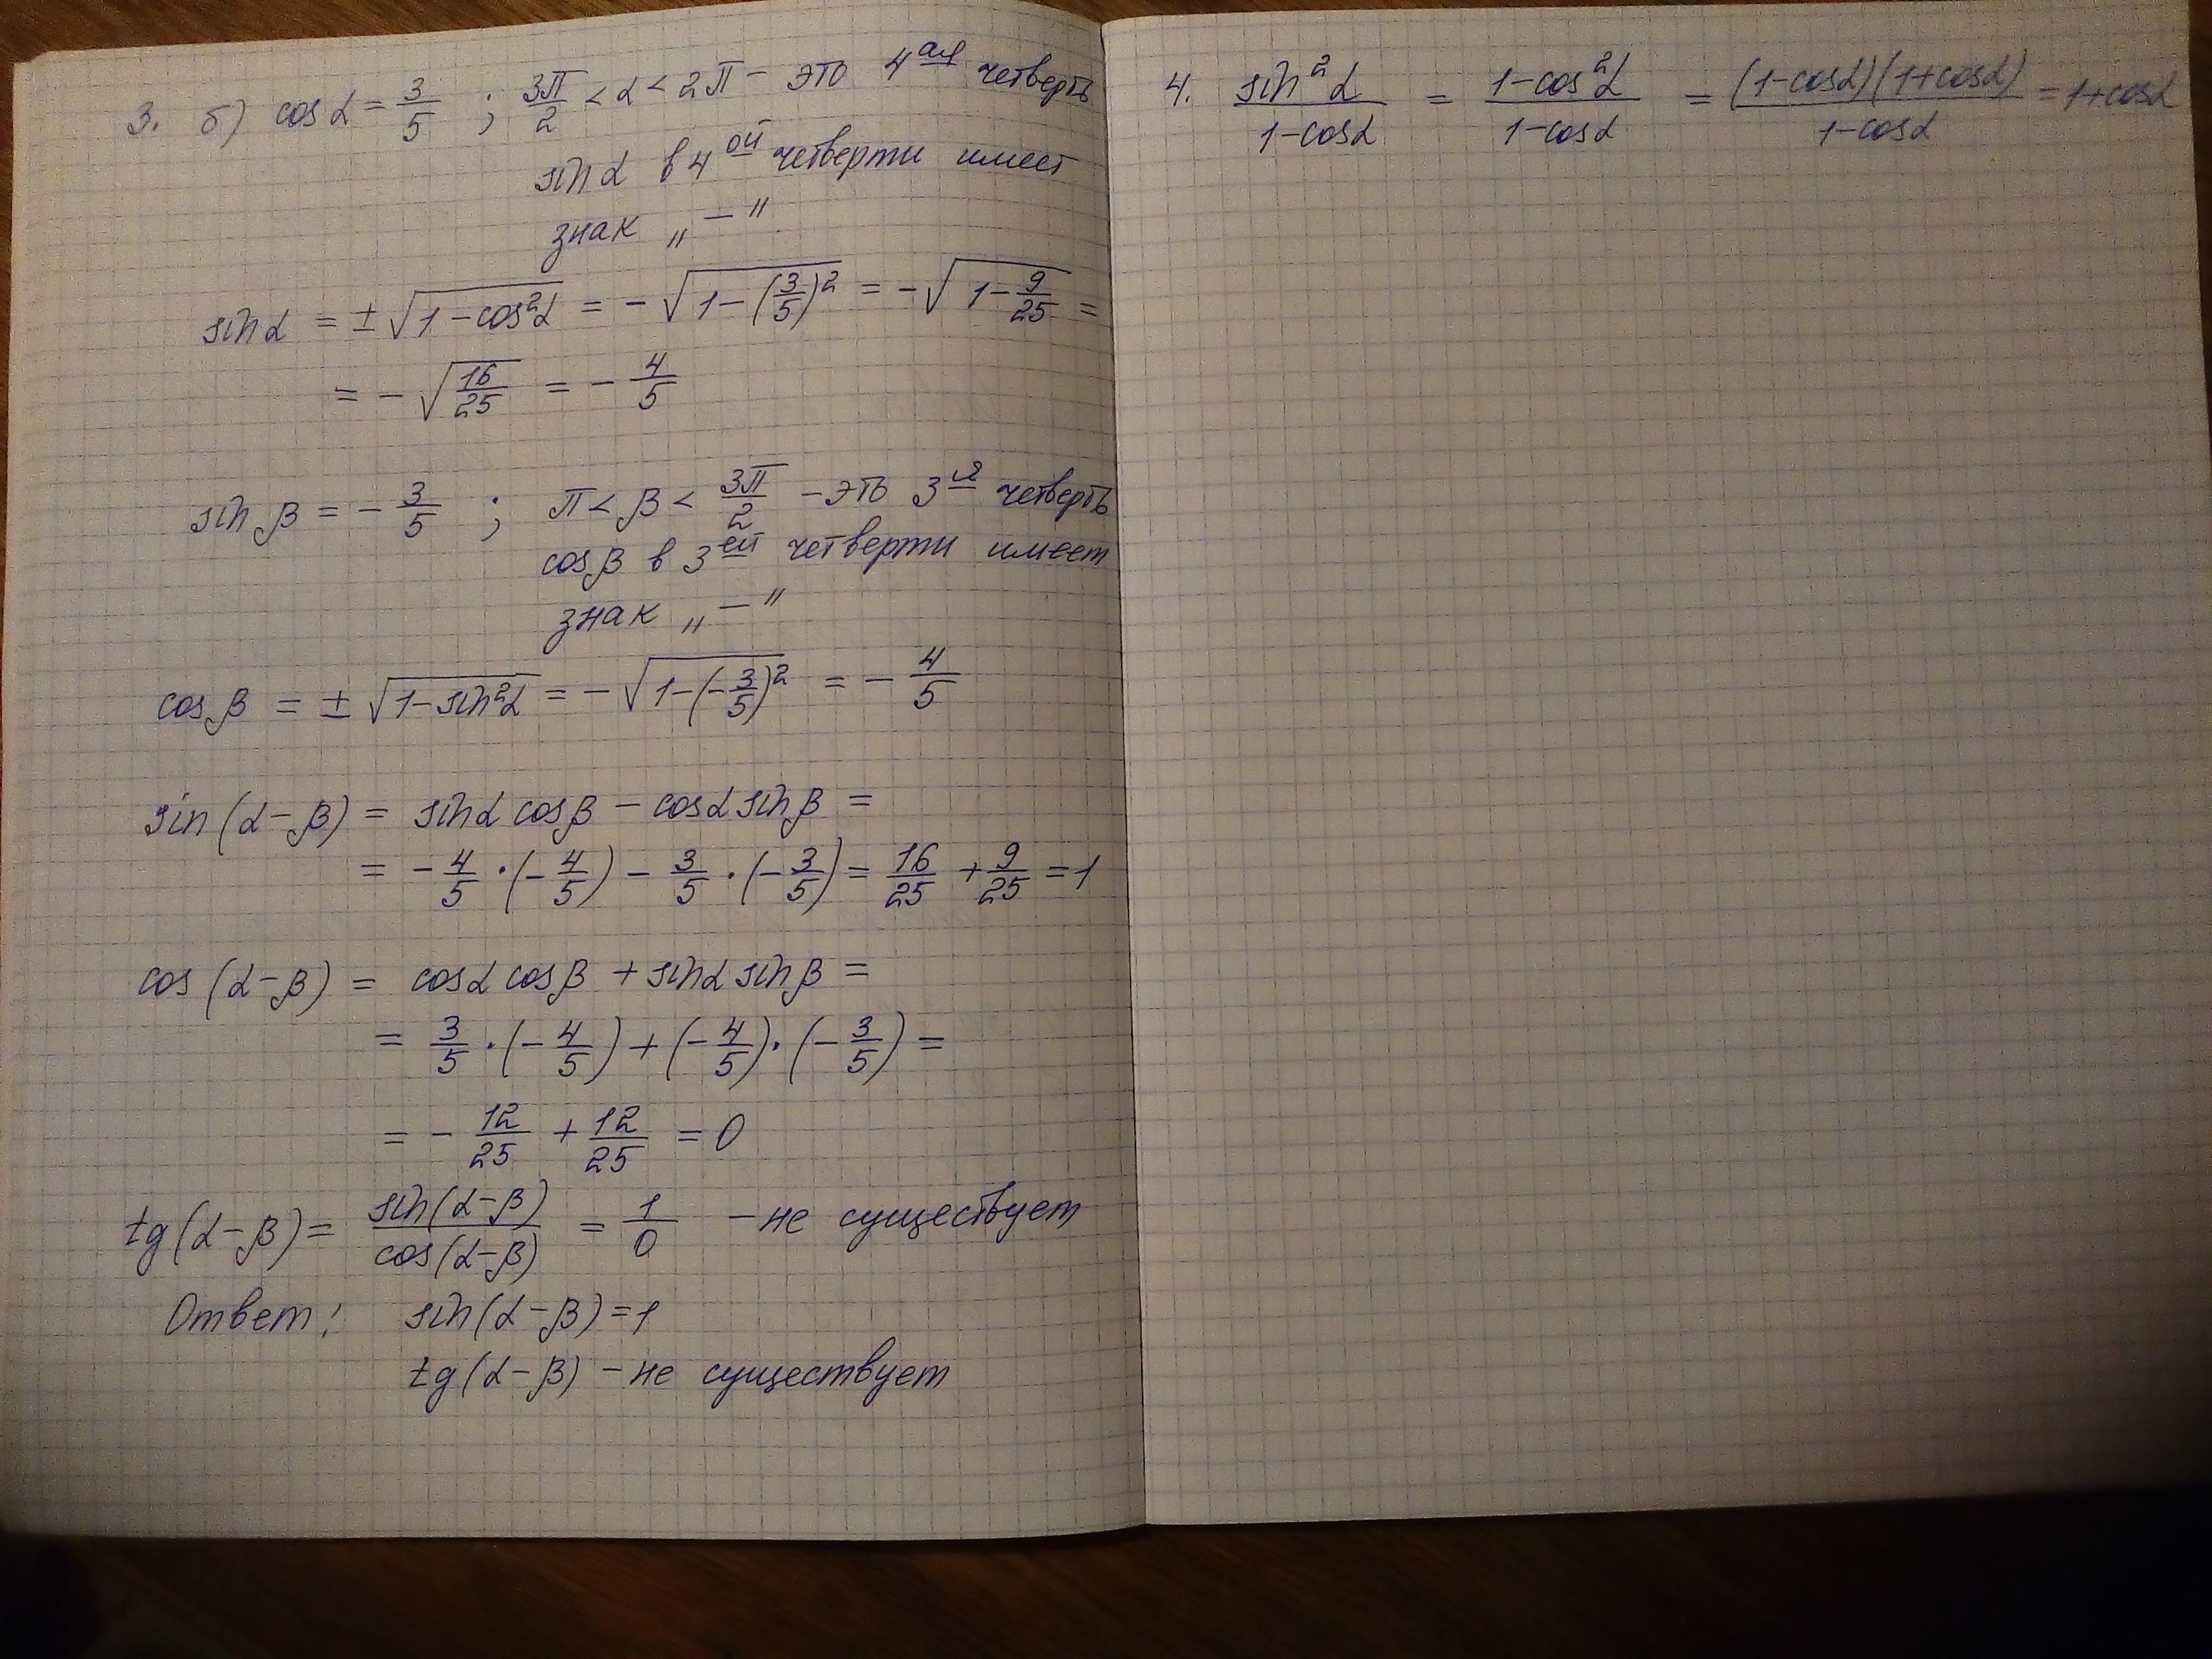 3. б) cos α = 3/5 ; 3π/2 < α < 2π – это 4ая четверть
sin α в 4ой четверти имеет
знак „–"
sin α = ±√(1 – cos²α) = –√(1 – (3/5)²) = –√(1 – 9/25) =
= –√(16/25) = – 4/5
sin β = – 3/5 ; π < β < 3π/2 – это 3я четверть
cos β в 3ей четверти имеет
знак „–"
cos β = ±√(1 – sin²α) = –√(1 – (–3/5)²) = – 4/5
sin (α – β) = sin α cos β – cos α sin β =
= – 4/5 · (– 4/5) – 3/5 · (– 3/5) = 16/25 + 9/25 = 1
cos (α – β) = cos α cos β + sin α sin β =
= 3/5 · (– 4/5) + (– 4/5) · (– 3/5) =
= – 12/25 + 12/25 = 0
tg (α – β) = sin(α – β)/cos(α – β) = 1/0 – не существует
Ответ: sin(α – β) = 1
tg(α – β) – не существует
4. sin²α/(1 – cos α) = (1 – cos²α)/(1 – cos α) = (1 – cos α)(1 + cos α)/(1 – cos α) = 1 + cos α